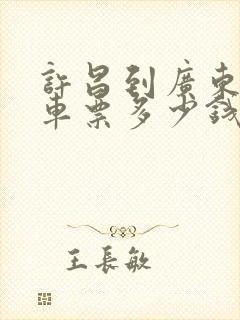 許昌到廣東
車票多少錢
王長敏